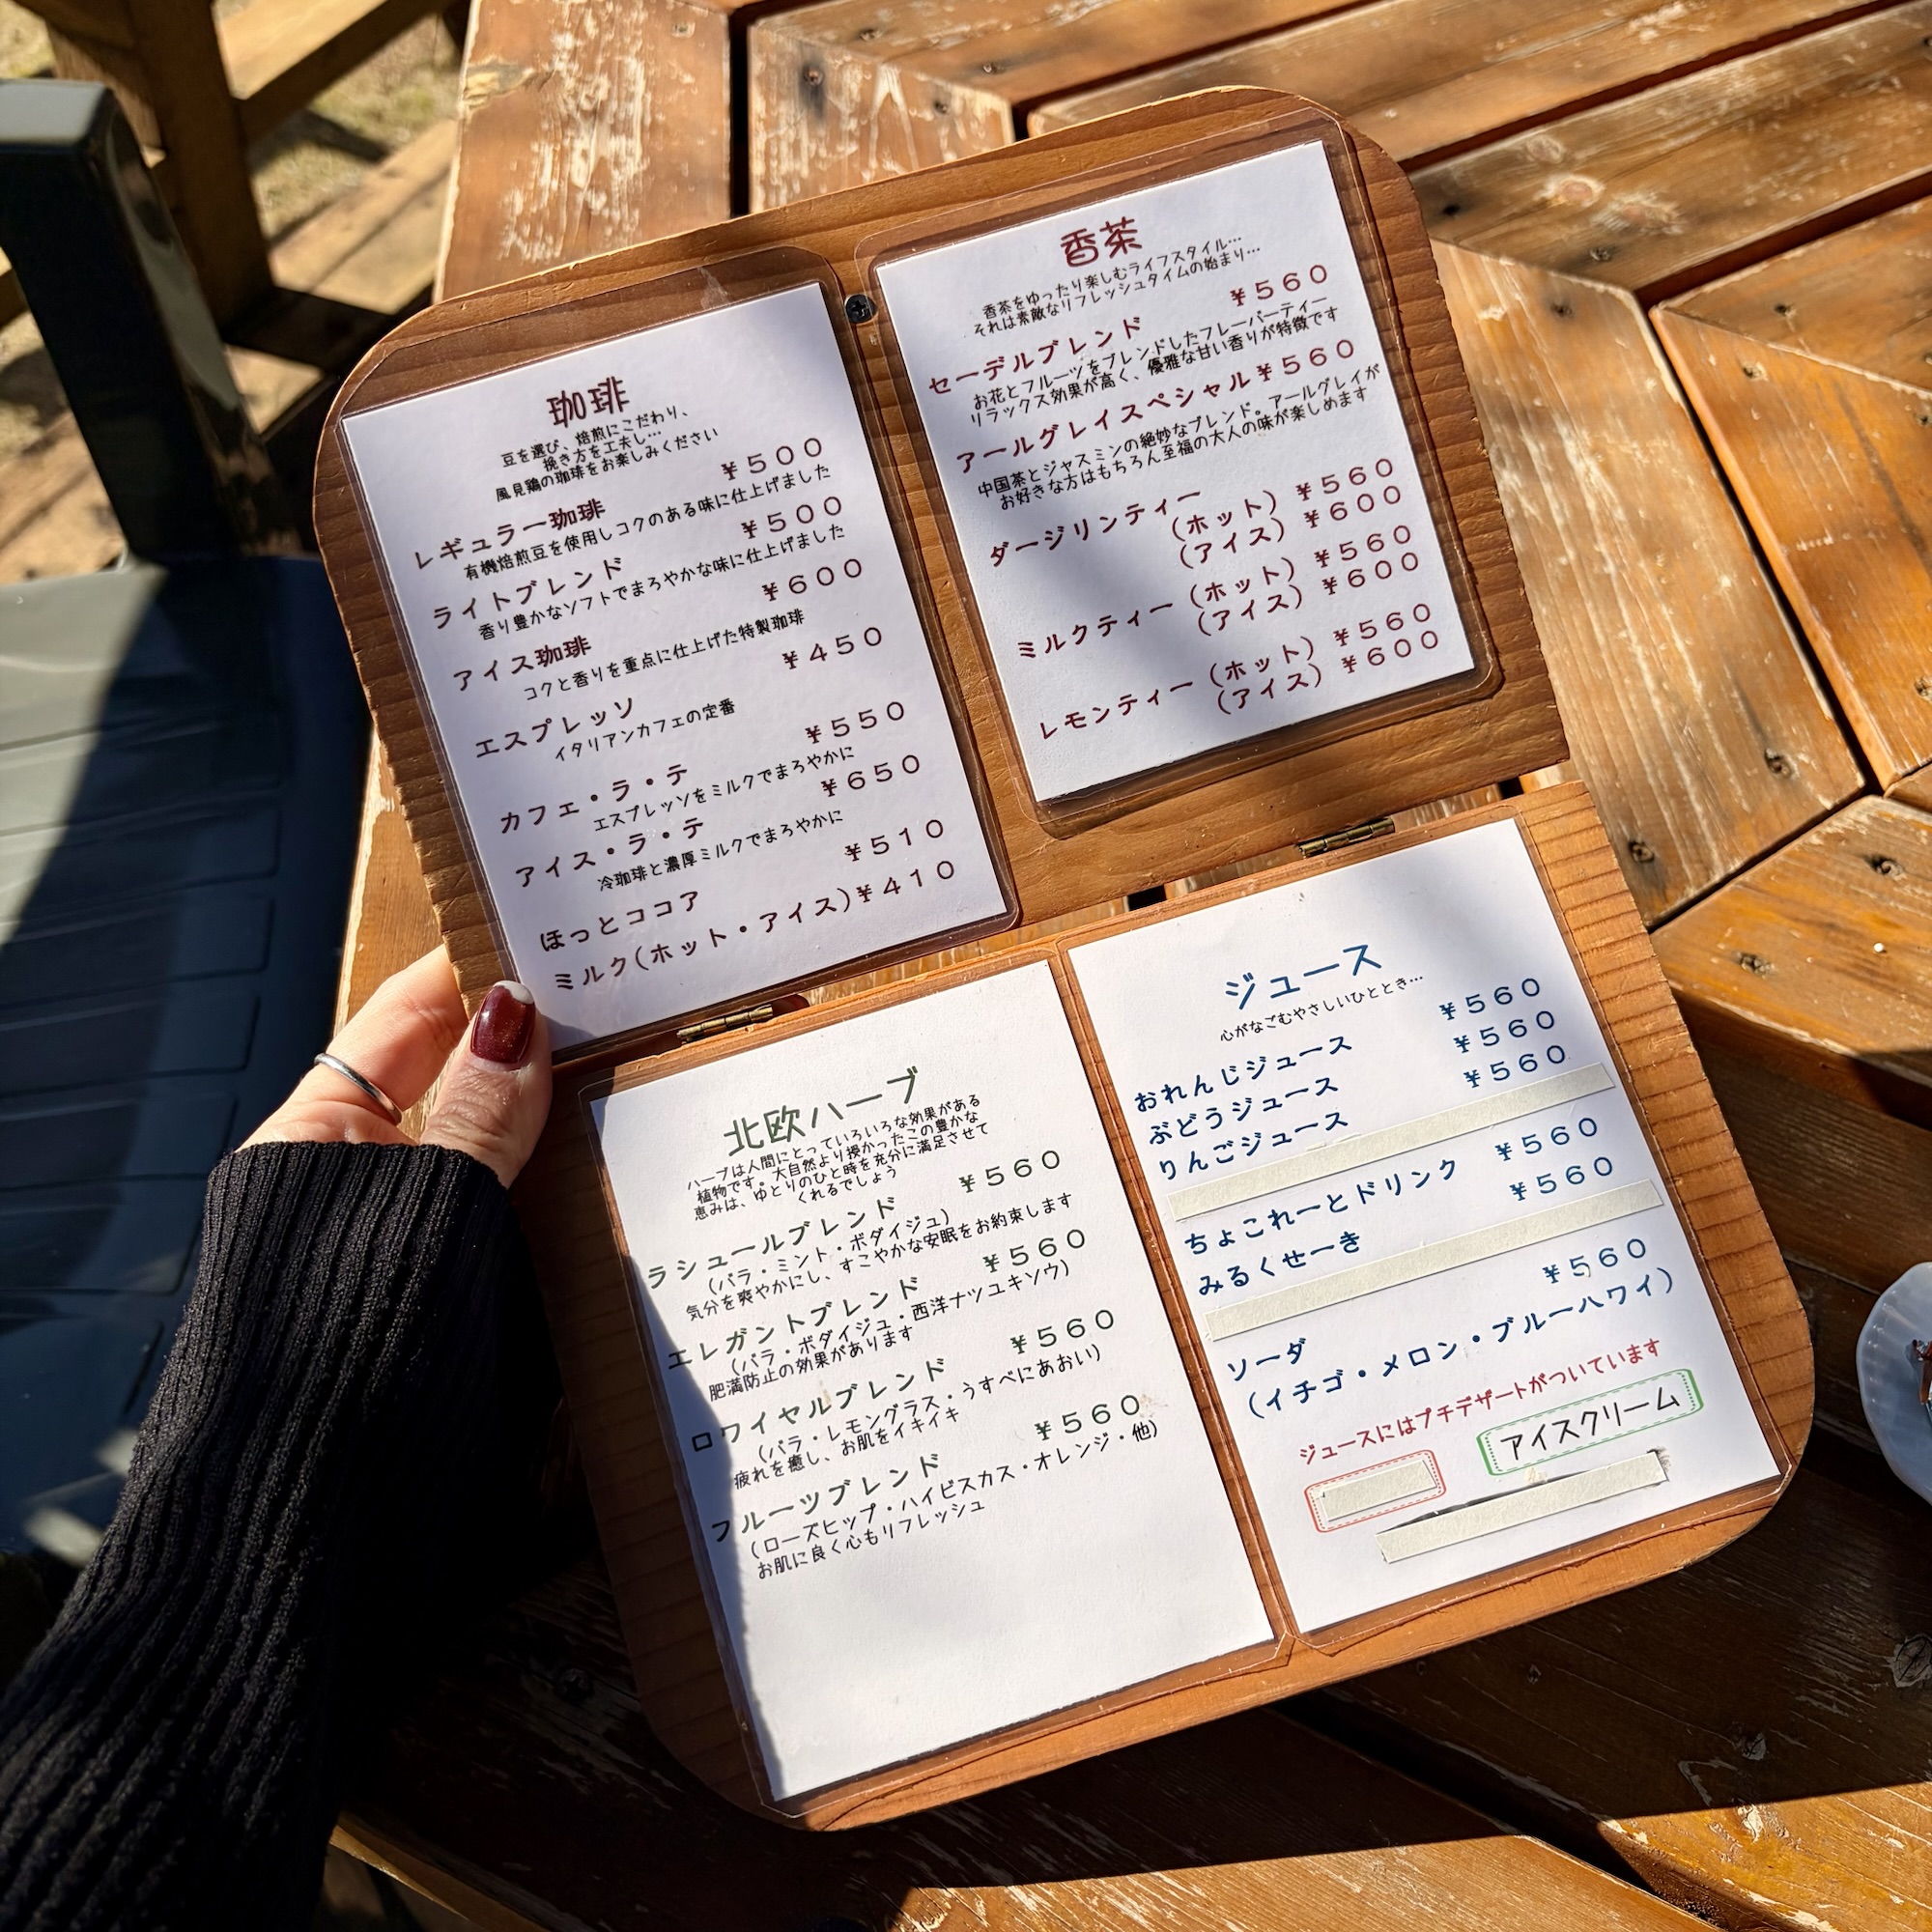 珈琲
豆を選び、焙煎にこだわり、
挽き方を工夫し…
風見鶏の珈琲をお楽しみください
レギュラー珈琲 ¥500
有機焙煎豆を使用しコクのある味に仕上げました
ライトブレンド ¥500
香り豊かなソフトでまろやかな味に仕上げました
アイス珈琲 ¥600
コクと香りを重点に仕上げた特製珈琲
エスプレッソ ¥450
イタリアンカフェの定番
カフェ・ラ・テ ¥550
エスプレッソをミルクでまろやかに
アイス・ラ・テ ¥650
冷珈琲と濃厚ミルクでまろやかに
ほっとココア ¥510
ミルク(ホット・アイス)¥410
香茶
香茶をゆったり楽しむライフスタイル…
それは素敵なリフレッシュタイムの始まり…
セーデルブレンド ¥560
お花とフルーツをブレンドしたフレーバーティー
リラックス効果が高く、優雅な甘い香りが特徴です
アールグレイスペシャル¥560
中国茶とジャスミンの絶妙なブレンド。アールグレイが
お好きな方はもちろん至福の大人の味が楽しめます
ダージリンティー
(ホット) ¥560
(アイス) ¥600
ミルクティー (ホット) ¥560
(アイス) ¥600
レモンティー (ホット) ¥560
(アイス) ¥600
北欧ハーブ
ハーブは人間にとっていろいろな効果がある
植物です。大自然より授かったこの豊かな
恵みは、ゆとりのひと時を充分に満足させて
くれるでしょう
ラシュールブレンド ¥560
(バラ・ミント・ボダイジュ)
気分を爽やかにし、すこやかな安眠をお約束します
エレガントブレンド ¥560
(バラ・ボダイジュ・西洋ナツユキソウ)
肥満防止の効果があります
ロワイヤルブレンド ¥560
(バラ・レモングラス・うすべにあおい)
疲れを癒し、お肌をイキイキ
フルーツブレンド ¥560
(ローズヒップ・ハイビスカス・オレンジ・他)
お肌に良く心もリフレッシュ
ジュース
心がなごむやさしいひととき…
おれんじジュース ¥560
ぶどうジュース ¥560
りんごジュース ¥560
ちょこれーとドリンク ¥560
みるくせーき ¥560
ソーダ ¥560
(イチゴ・メロン・ブルーハワイ)
ジュースにはプチデザートがついています
アイスクリーム